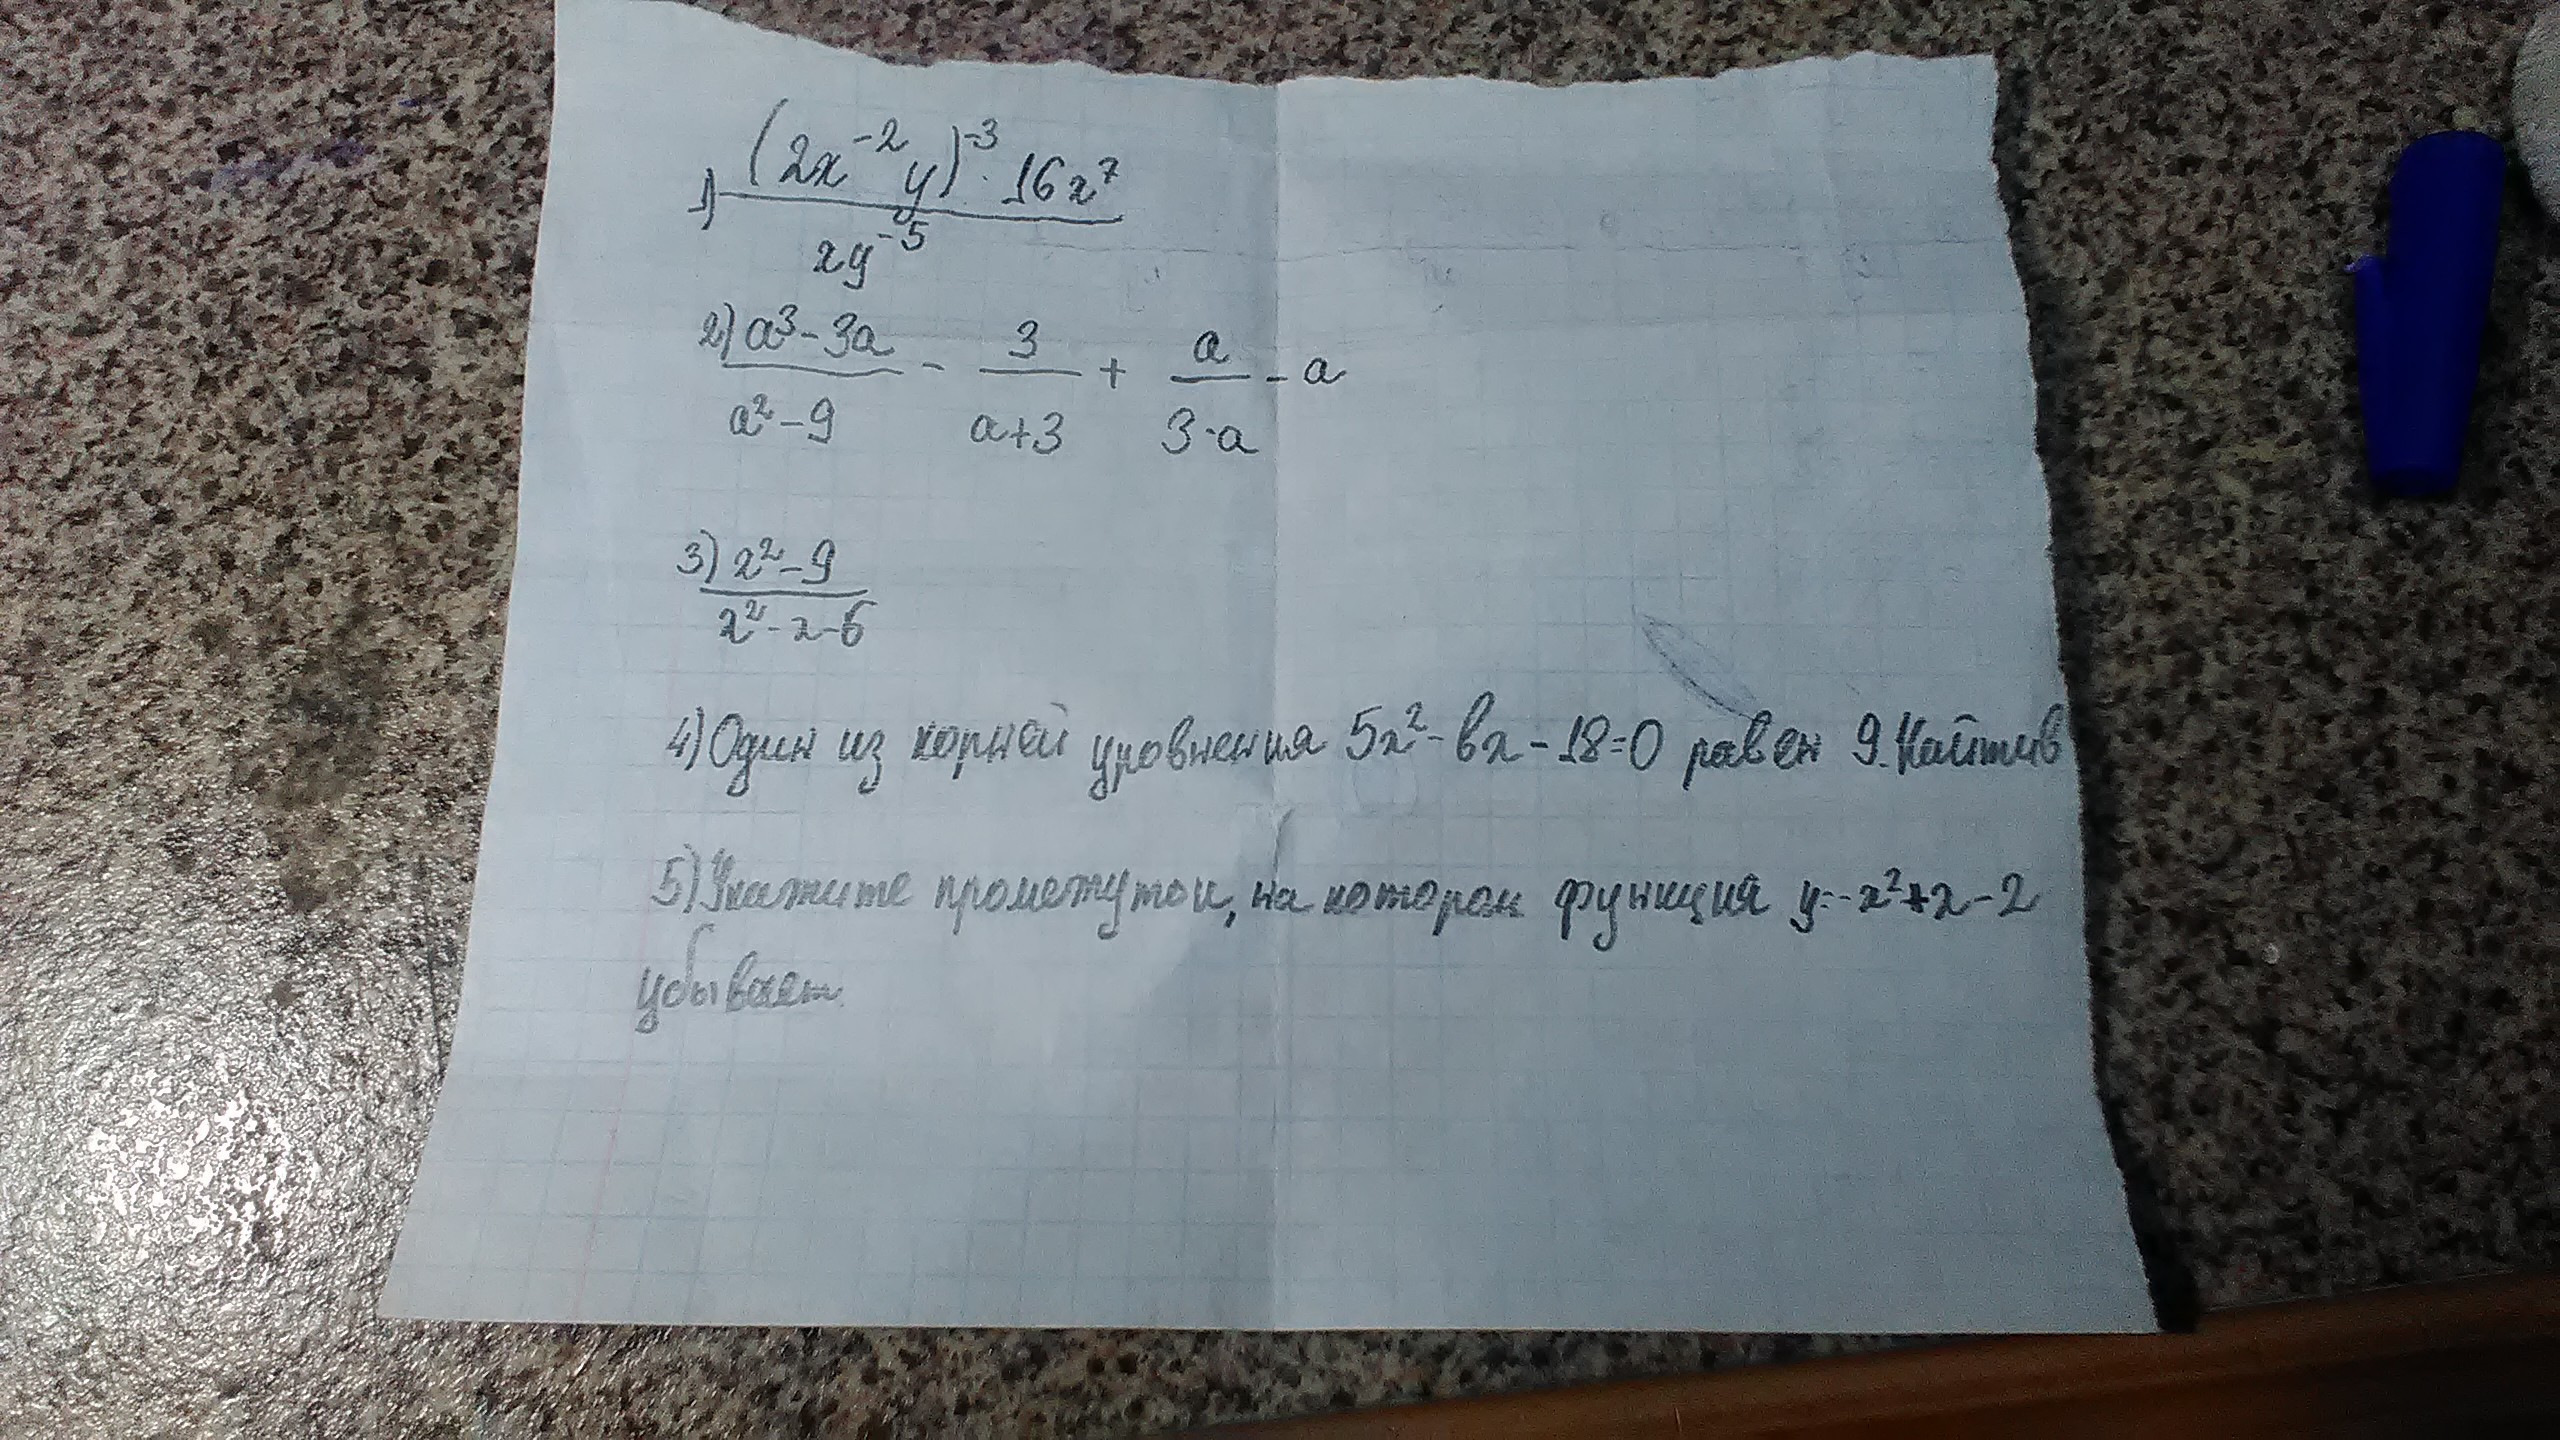 1) (2x⁻²y)⁻³ · 16x⁷
xy⁻⁵
2) a³-3a - 3 + a - a
a²-9 a+3 3-a
3) x²-9
x²-x-6
4) Один из корней уровнения 5x²-bx-18=0 равен 9. Найти в
5) Укажите промежуток, на котором функция y=-x²+x-2
убывает.